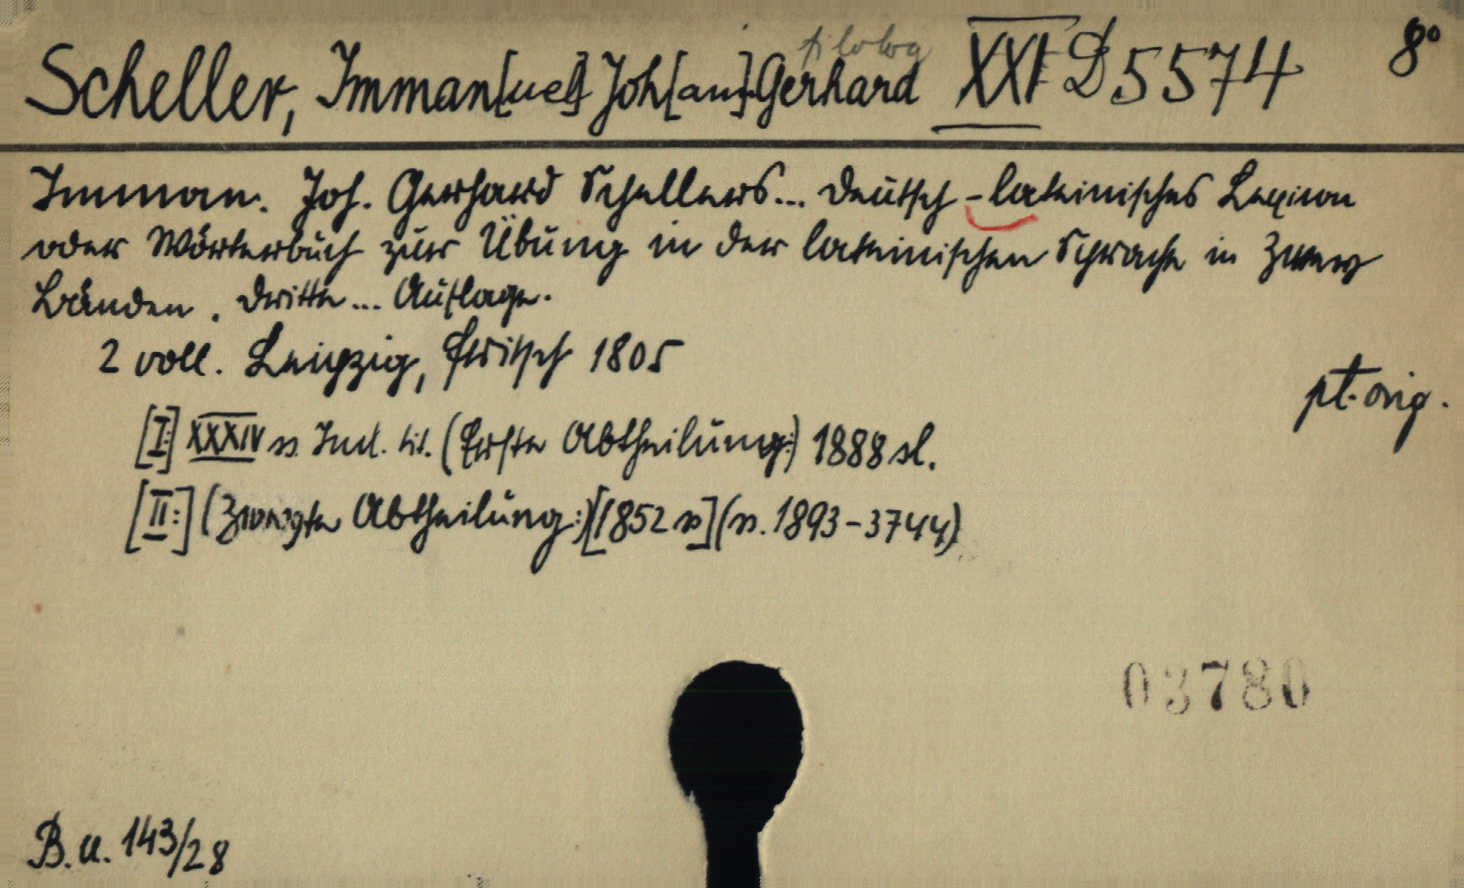 filolog
Scheller, Imman[uel] Joh[an] Gerhard XXI D 5574 8°
Imman. Joh. Gerhard Schellers... deutsch-lateinisches Lexicon
oder Wörterbuch zur Übung in der lateinischen Sprache in zwey
Bänden. Dritte... Auflage.
2 voll. Leipzig, Fritsch 1805
pt. orig.
[I:] XXXIV s. Incl. tit. (Erste Abtheilung:) 1888 sl.
[II:] (Zweyte Abtheilung:) [1852 s] (s. 1893-3744)
03780
B. u. 143/28